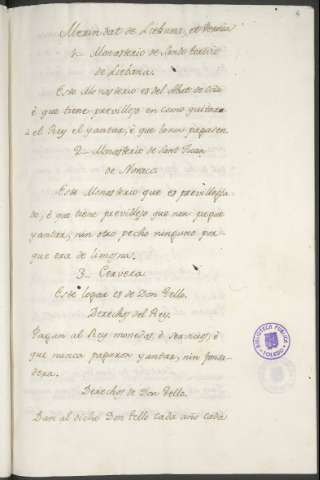 Merindat de Liebana, et Pernia
1.. Monasterio de Santo
de Liebana.
Este Monesterio es del Abat de Oña
è que tiene previllejo en como quitara
el Rey el yantar, è que nonca pagasen.
2.. Monasterio de Sant Juan
de Noraco
Este Monesterio que es previllegia-
do, è que tiene previllejo que non pague
yantar, nin otro pecho ninguno por
que era de limosna.
3.. Cervera
Este logar es de Don Tello.
Derechos del Rey.
Pagan al Rey monedas, è servicios, è
que nunca pagaron yantar, nin fonsa-
dera.
Derechos de Don Tello.
Dan al dicho Don Tello cada año cada
BIBLIOTECA PÚBLICA
TOLEDO